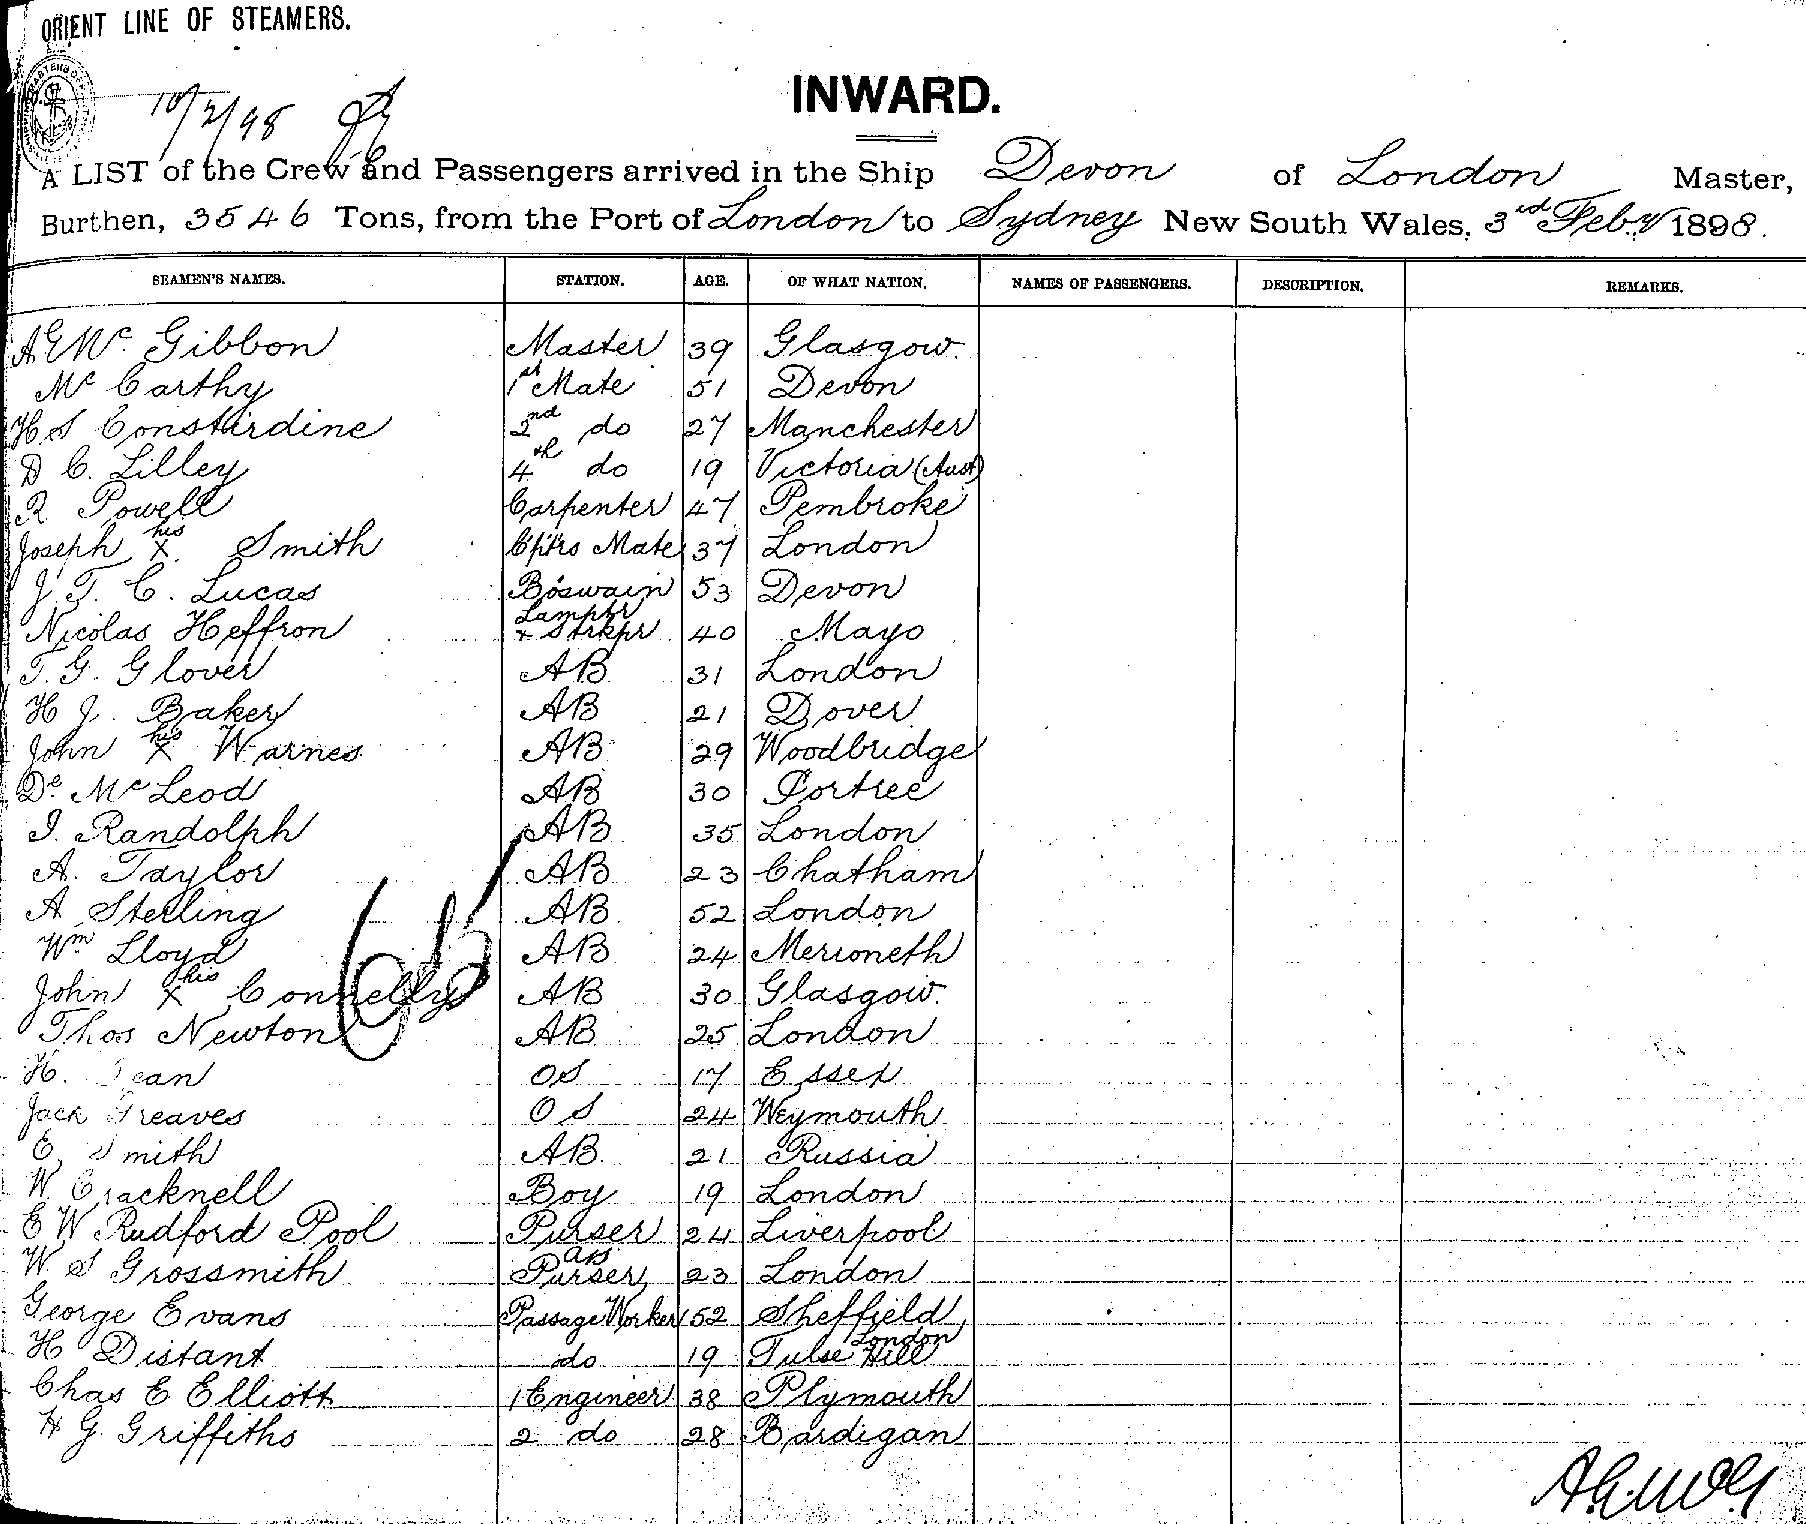 ORIENT LINE OF STEAMERS.
10/2/98
INWARD.
A LIST of the Crew and Passengers arrived in the Ship Devon of London Master,
Burthen, 3546 Tons, from the Port of London to Sydney New South Wales, 3rd Feby 1898.
SEAMEN'S NAMES. STATION. AGE. OF WHAT NATION. NAMES OF PASSENGERS. DESCRIPTION. REMARKS.
A E Mc Gibbon Master 39 Glasgow
Mc Carthy 1st Mate 51 Devon
H S Constirdine 2nd do 27 Manchester
D C. Lilley 4th do 19 Victoria (Aust)
R Powell Carpenter 47 Pembroke
Joseph his X Smith Cptrs Mate 37 London
J. T. C. Lucas Boswain 53 Devon
Nicolas Heffron Lamptr + Strkpr 40 Mayo
T. G. Glover AB 31 London
H J. Baker AB 21 Dover
John his X Warnes AB 29 Woodbridge
Dd Mc Leod AB 30 Portree
I. Randolph AB 35 London
A. Taylor AB 23 Chatham
A Sterling AB 52 London
Wm Lloyd AB 24 Merioneth
John his X Connelly AB 30 Glasgow
Thos Newton AB 25 London
H. Dean OS 17 Essex
Jack Greaves OS 24 Weymouth
E Smith AB 21 Russia
W Cracknell Boy 19 London
E W Rudford Pool Purser 24 Liverpool
W S Grossmith Ass Purser 23 London
George Evans Passage Worker 52 Sheffield
H Distant do 19 Tulse Hill London
Chas E Elliott 1 Engineer 38 Plymouth
H G Griffiths 2 do 28 Bardigan
A.E.McG